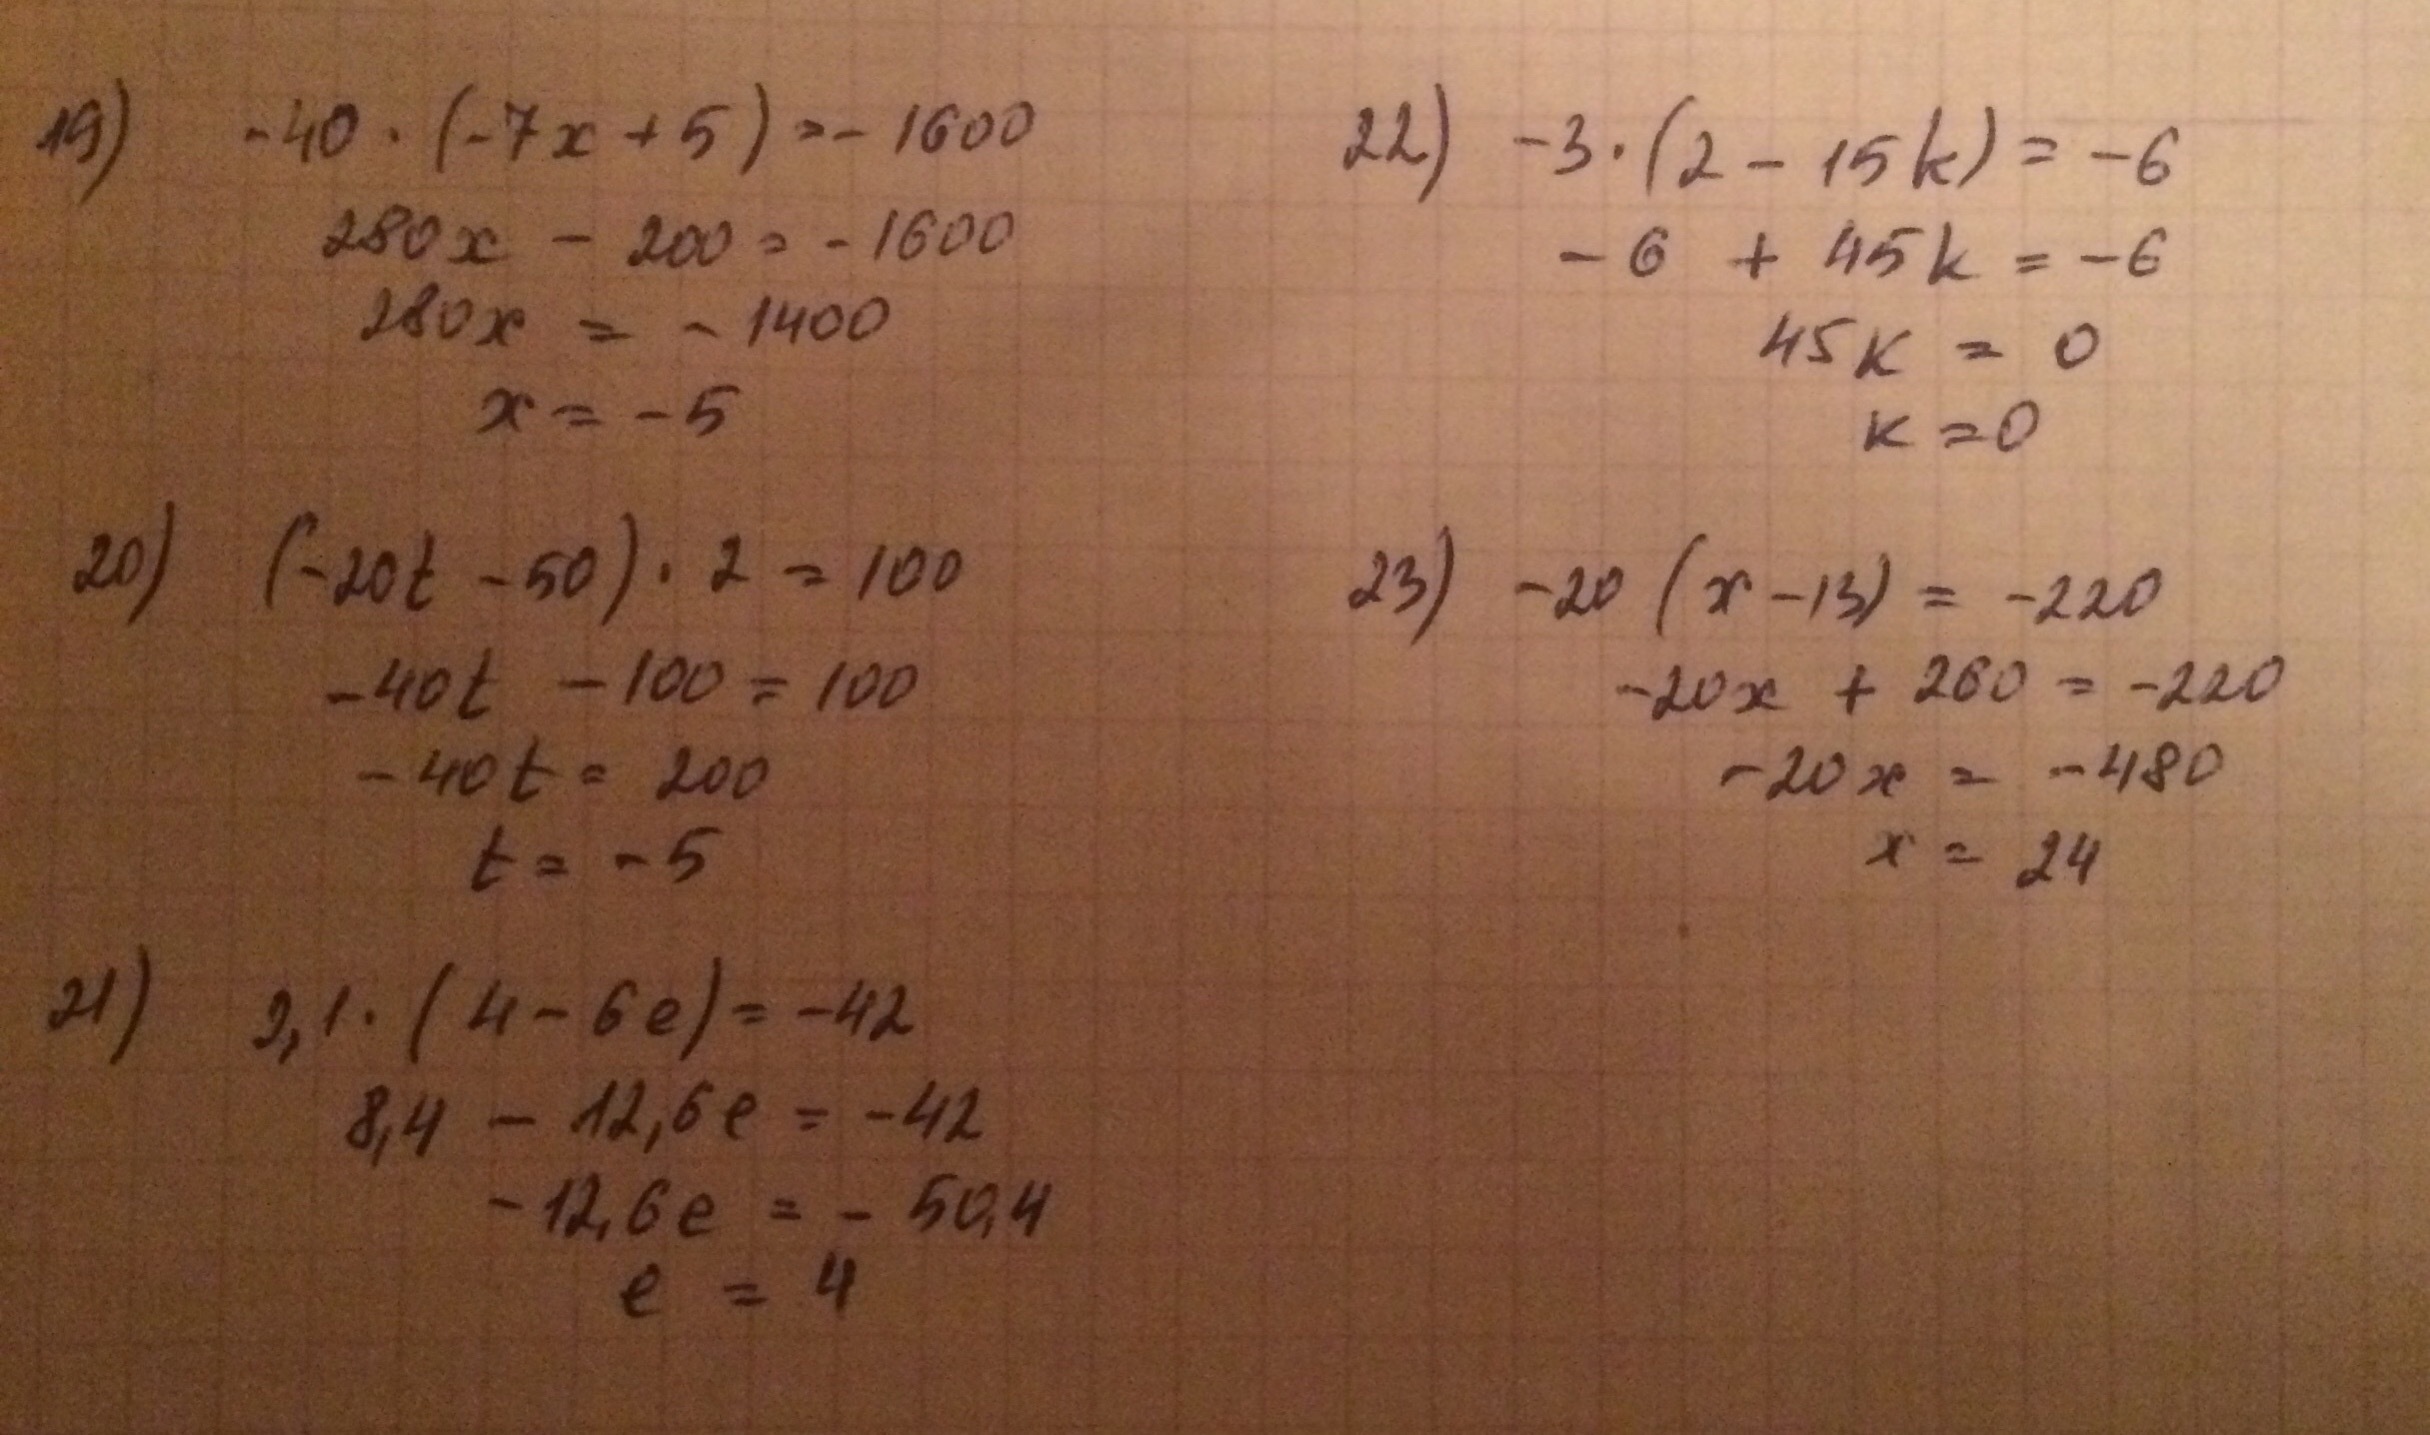 19) -40 · (-7x + 5) = - 1600
280x - 200 = -1600
280x = - 1400
x = -5
20) (-20t - 50) · 2 = 100
-40t - 100 = 100
-40t = 200
t = -5
21) 2,1 · (4 - 6e) = -42
8,4 - 12,6e = -42
-12,6e = - 50,4
e = 4
22) -3 · (2 - 15k) = -6
-6 + 45k = -6
45k = 0
k = 0
23) -20 (x - 13) = -220
-20x + 260 = -220
-20x = -480
x = 24